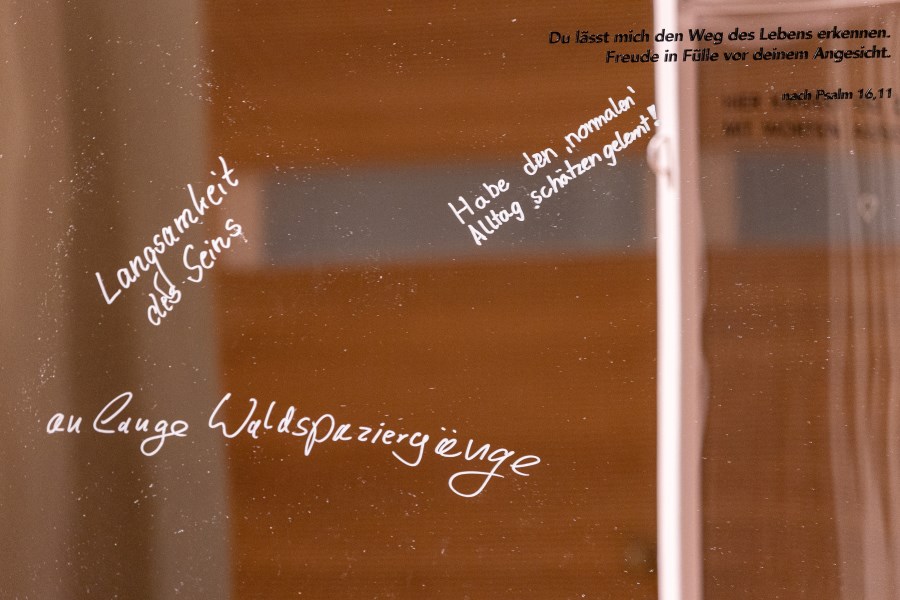 Du lässt mich den Weg des Lebens erkennen.
Freude in Fülle vor deinem Angesicht.
nach Psalm 16,11
Habe den ‚normalen'
Alltag schätzen gelernt!
Langsamkeit
des Seins
an lange Waldspaziergänge